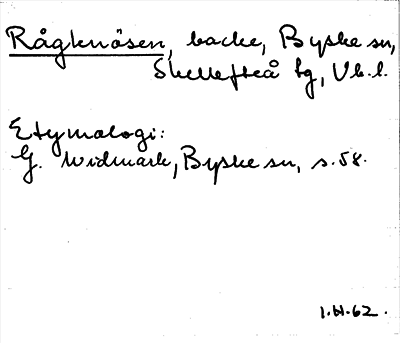 Rågknösen, backe, Byske sn,
Skellefteå tg, Vb.l.
Etymologi:
G. Widmark, Byske sn, s.58.
I.H.62.